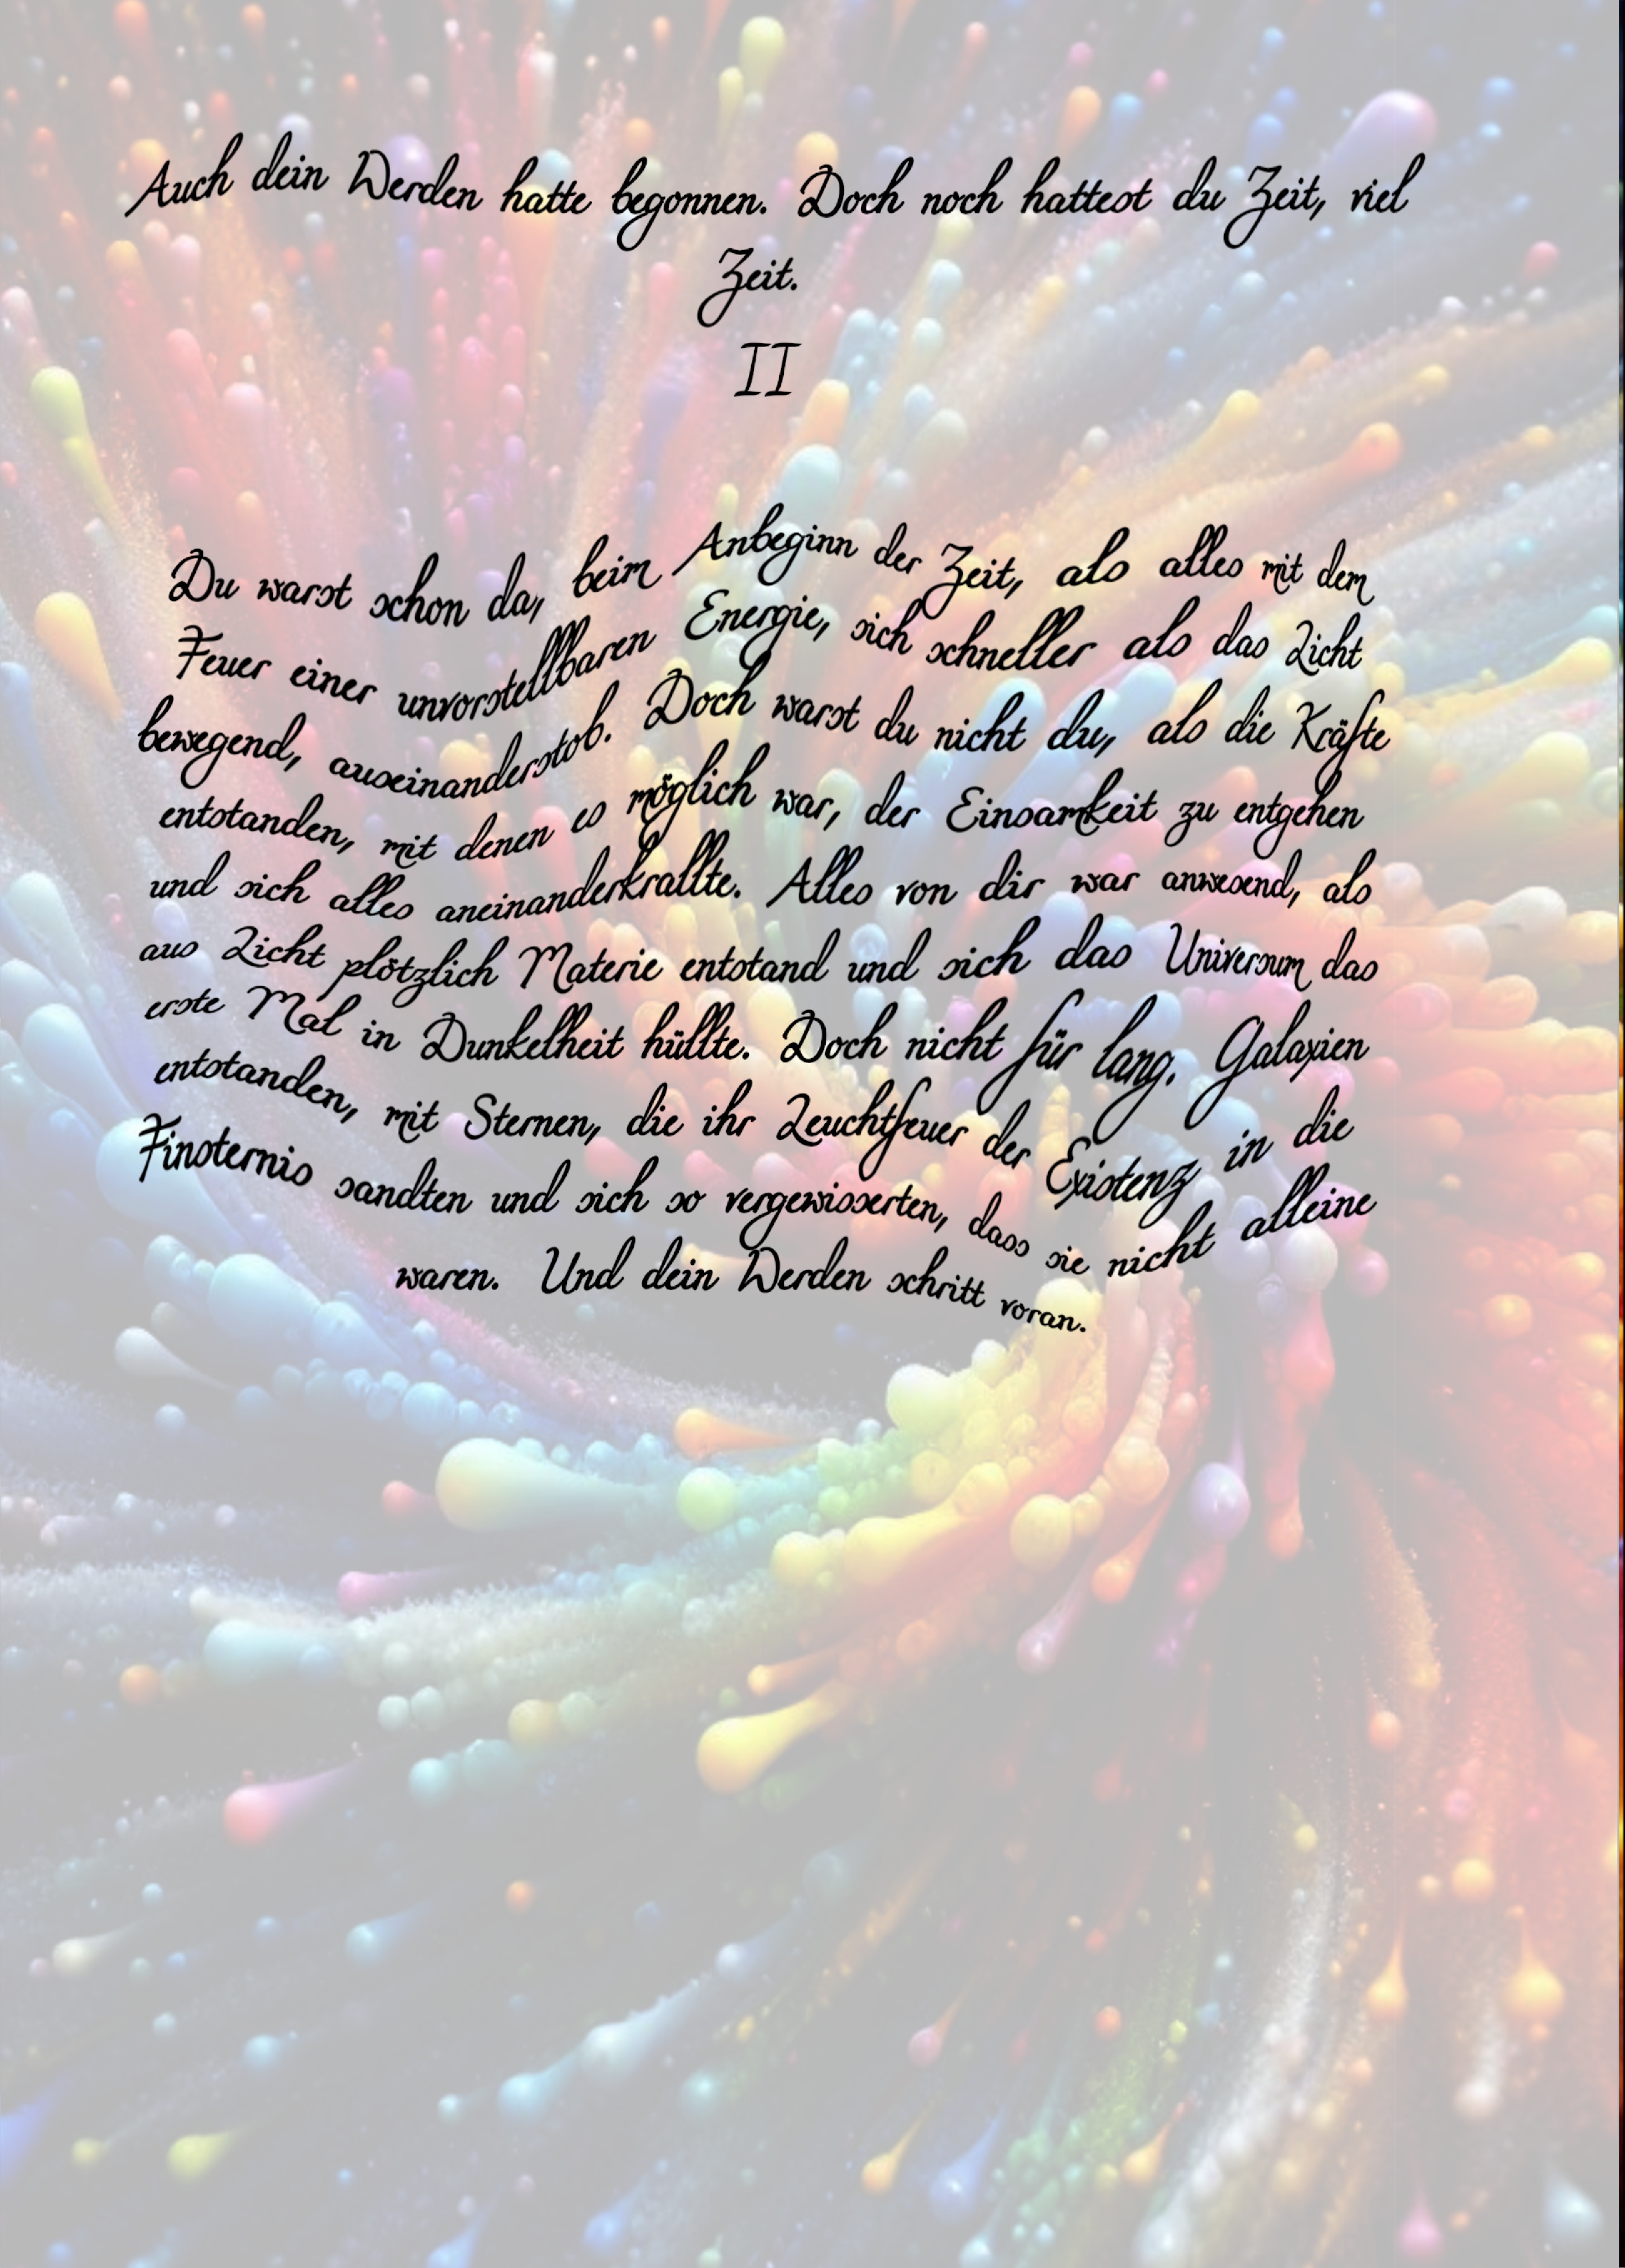 Auch dein Werden hatte begonnen. Doch noch hattest du Zeit, viel
Zeit.
II
Du warst schon da, beim Anbeginn der Zeit, als alles mit dem
Feuer einer unvorstellbaren Energie, sich schneller als das Licht
bewegend, auseinanderstob. Doch warst du nicht du, als die Kräfte
entstanden, mit denen es möglich war, der Einsamkeit zu entgehen
und sich alles aneinanderkrallte. Alles von dir war anwesend, als
aus Licht plötzlich Materie entstand und sich das Universum das
erste Mal in Dunkelheit hüllte. Doch nicht für lang. Galaxien
entstanden, mit Sternen, die ihr Leuchtfeuer der Existenz in die
Finsternis sandten und sich so vergewisserten, dass sie nicht alleine
waren. Und dein Werden schritt voran.